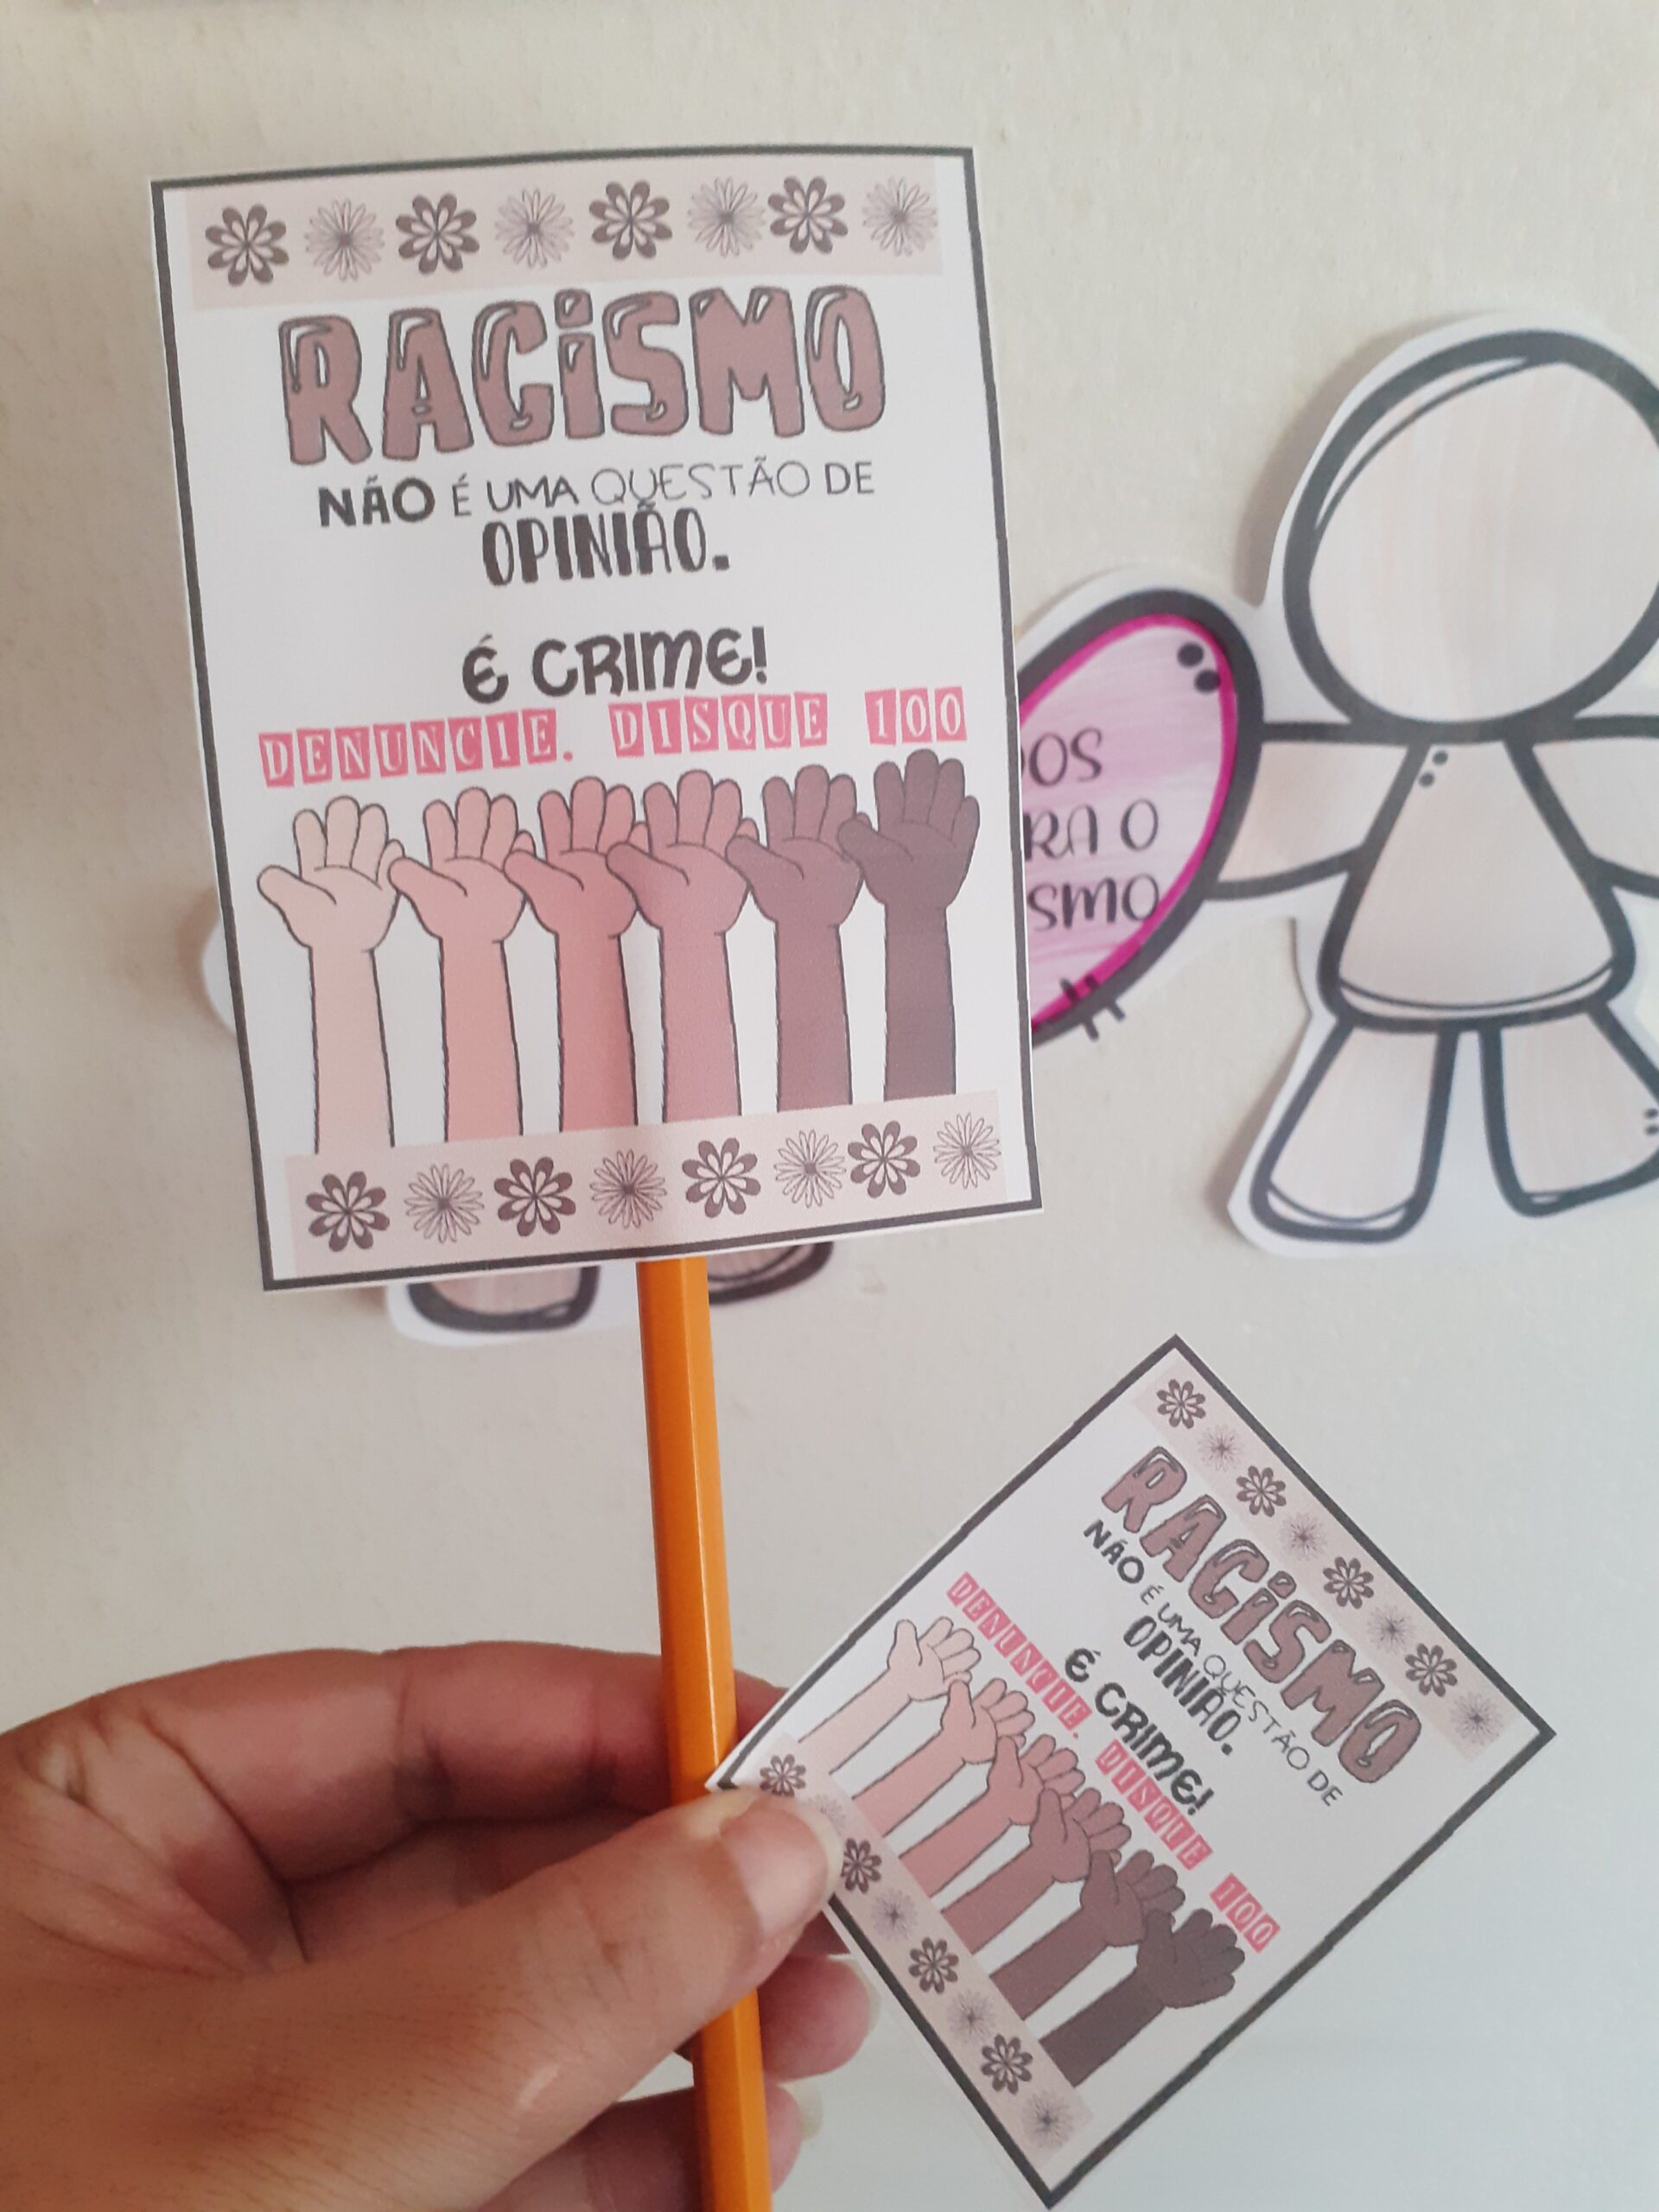 RACISMO
NÃO É UMA QUESTÃO DE
OPINIÃO.
É CRIME!
DENUNCIE. DISQUE 100
OS
RA O
SMO
RACISMO
NÃO É UMA QUESTÃO DE
OPINIÃO.
É CRIME!
DENUNCIE. DISQUE 100